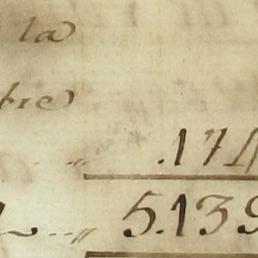 la
bre
„ .174
„ 5.139